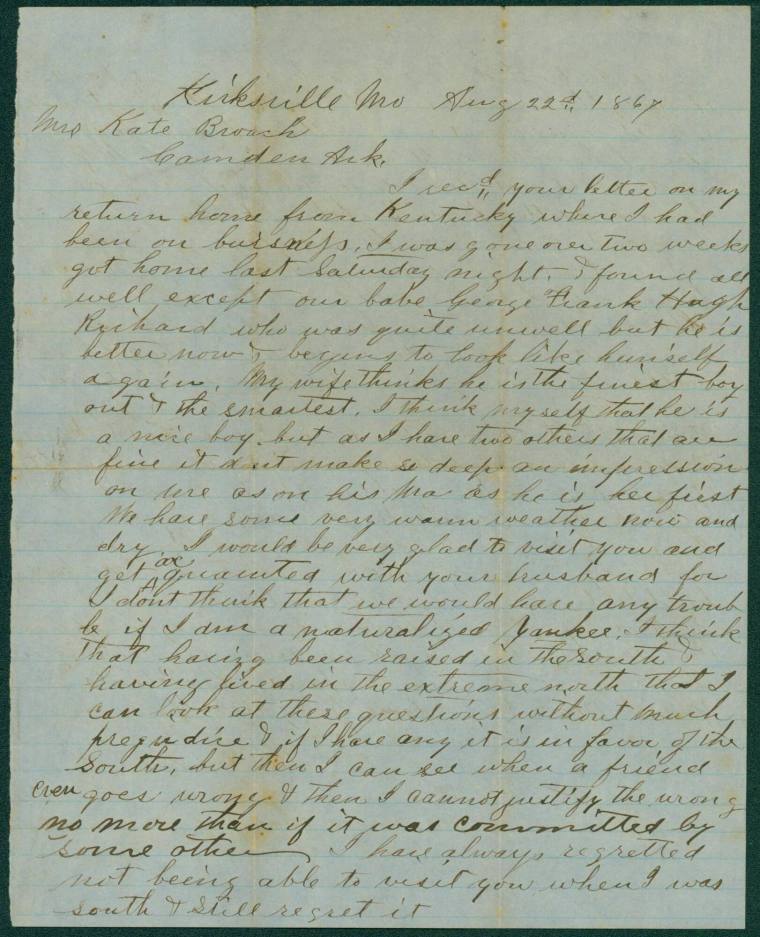 Kirksville Mo Aug 22d 1867
Mrs Kate Broach
Camden Ark.
I recd your letter on my
return home from Kentucky where I had
been on bussness, I was gone over two weeks
got home last Saturday night. & found all
well except our babe George Frank Hugh
Richard who was quite unwell but he is
better now & begins to look like himself
again. My wife thinks he is the finest boy
out & the smartest. I think myself that he is
a nice boy. but as I have two others that are
fine it dont make so deep an impression
on me as on his Ma as he is her first
We have some very warm weather now and
dry. I would be very glad to visit you and
get acquainted with your husband for
I dont think that we would have any troub
le if I am a naturalized Yankee. I think
that having been raised in the south &
having lived in the extreme north that I
can look at these questions without much
prejudice & if I have any it is in favor of the
South, but then I can see when a friend
even goes wrong & then I cannot justify the wrong
no more than if it was committed by
some other I have always regretted
not being able to visit you when I was
south & still regret it